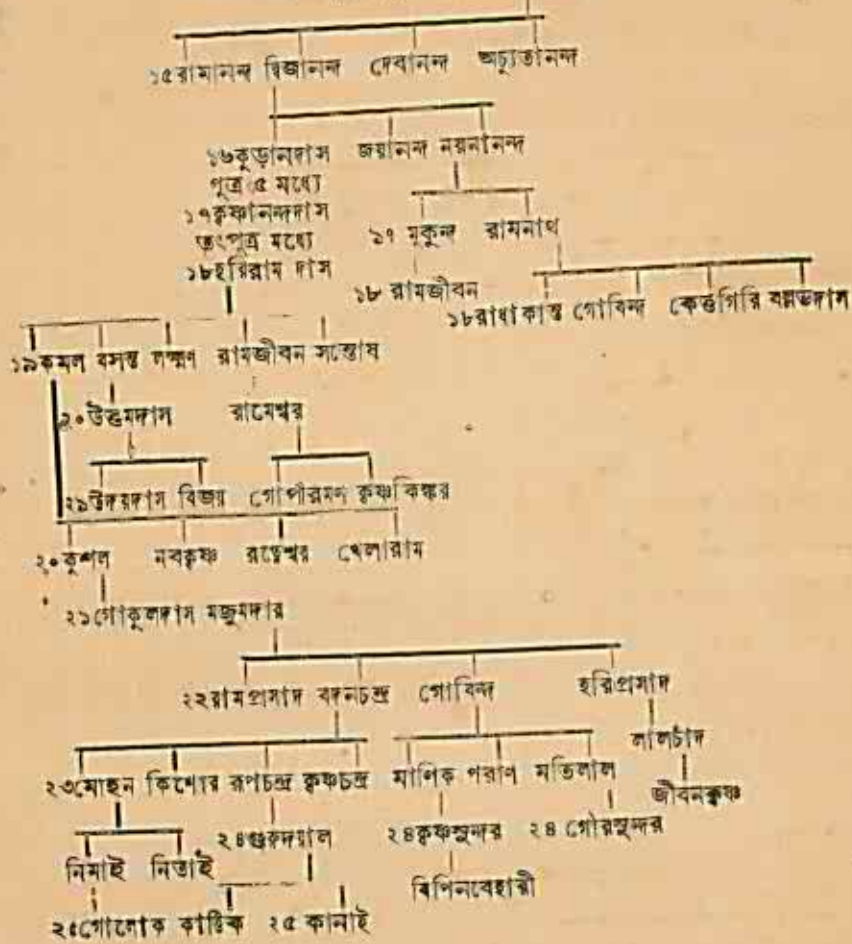 ১৫রামানন্দ দ্বিজানন্দ দেবানন্দ অচ্যুতানন্দ
১৬কুড়ানদাস জয়ানন্দ নয়নানন্দ
পুত্র ৫ মধ্যে
১৭কৃষ্ণানন্দদাস
তৎপুত্র মধ্যে
১৭ মুকুন্দ রামনাথ
১৮হরিরাম দাস
১৮ রামজীবন
১৮রাধাকান্ত গোবিন্দ কেত্তগিরি বল্লভদাস
১৯কমল বসন্ত লক্ষ্মণ রামজীবন সন্তোষ
২০উত্তমদাস রামেশ্বর
২১উদয়দাস বিজয় গোপীরমন কৃষ্ণকিঙ্কর
২০কুশল নবকৃষ্ণ রত্নেশ্বর খেলারাম
২১গোকুলদাস মজুমদার
২২রামপ্রসাদ বদনচন্দ্র গোবিন্দ হরিপ্রসাদ
লালচাঁদ
২৩মোহন কিশোর রূপচন্দ্র কৃষ্ণচন্দ্র মাণিক পরাণ মতিলাল
জীবনকৃষ্ণ
২৪গুরুদয়াল ২৪কৃষ্ণসুন্দর ২৪ গৌরসুন্দর
নিমাই নিতাই
বিপিনবেহারী
২৫গোলোক কার্ত্তিক ২৫ কানাই